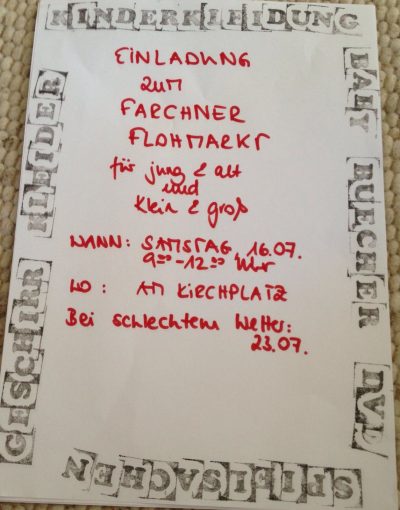 KINDERKLEIDUNG
BABY BUECHER DVD/
SPIELSACHEN
GESCHIRR KLEIDER
EINLADUNG
ZUM
FARCHNER
FLOHMARKT
für jung & alt
und
klein & groß
WANN: SAMSTAG, 16.07.
9⁰⁰-12⁰⁰ Uhr
WO: AM KIRCHPLATZ
Bei schlechtem Wetter:
23.07.